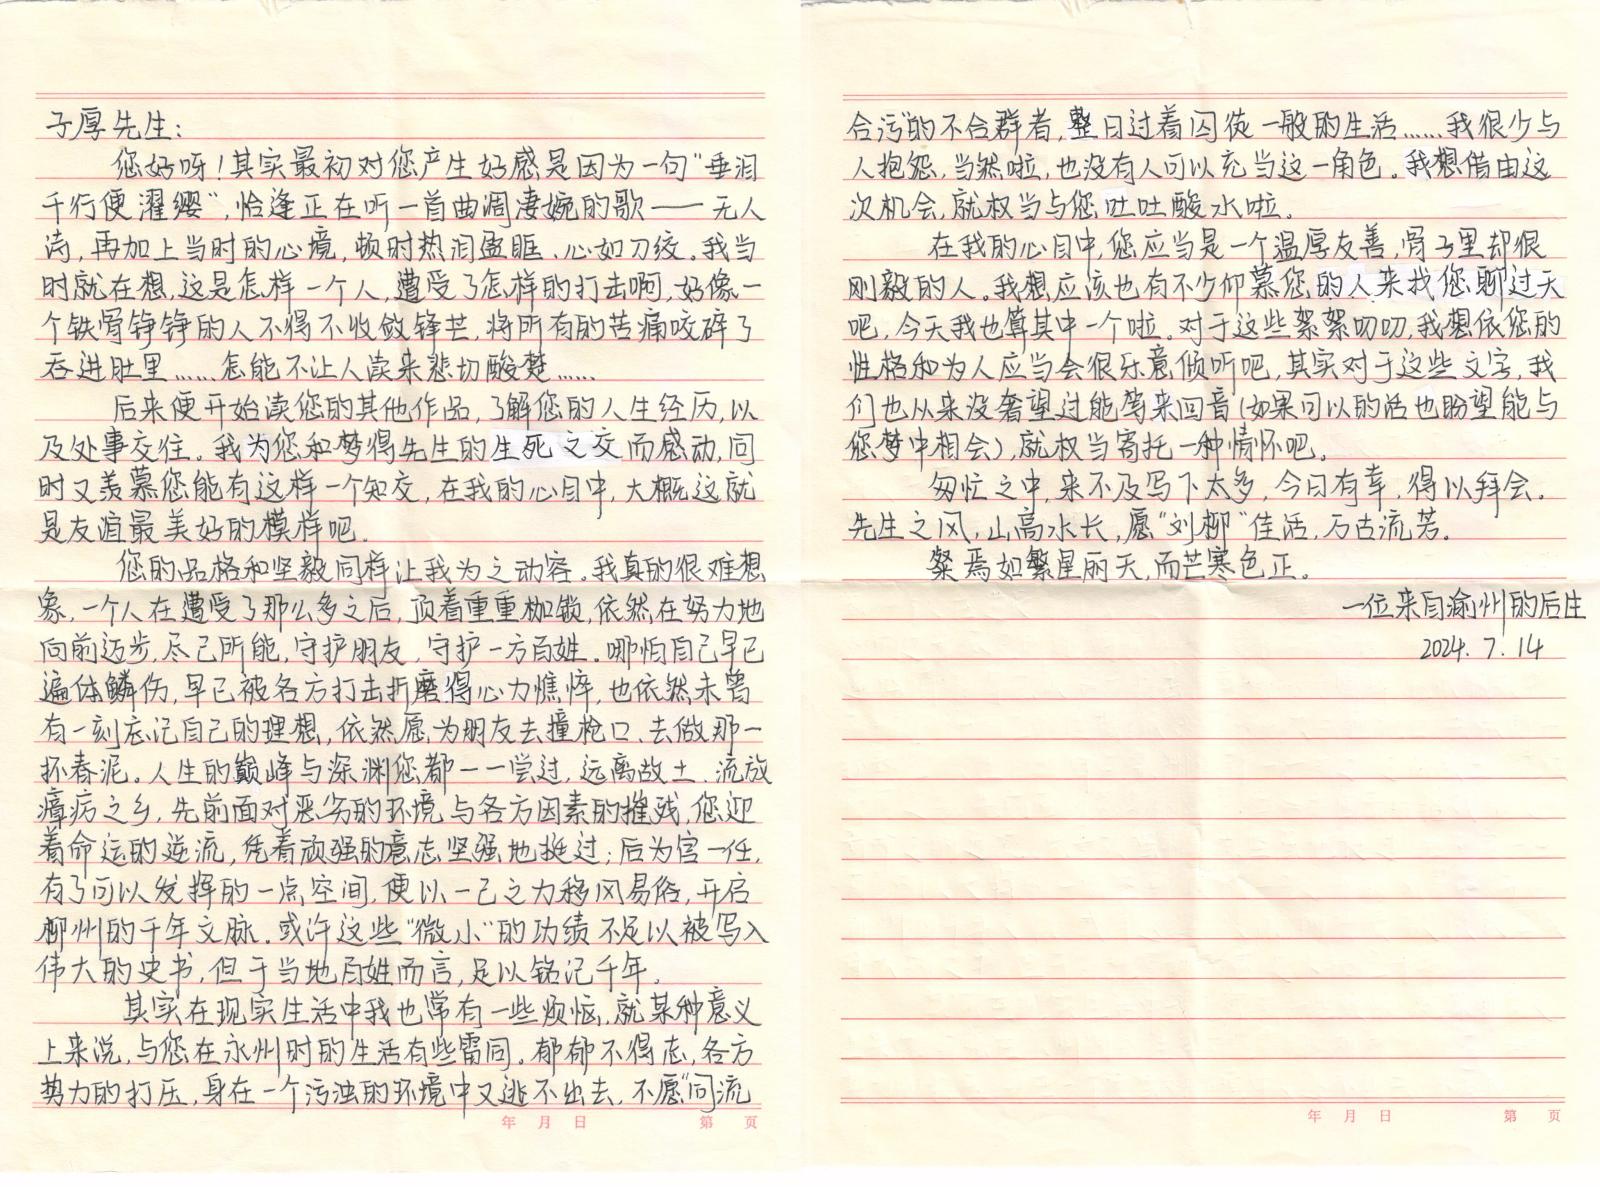 子厚先生：
您好呀！其实最初对您产生好感是因为一句“垂泪
千行便濯缨”，恰逢正在听一首曲调凄婉的歌——无人
诗，再加上当时的心境，顿时热泪盈眶、心如刀绞。我当
时就在想，这是怎样一个人，遭受了怎样的打击啊，好像一
个铁骨铮铮的人不得不收敛锋芒，将所有的苦痛咬碎了
吞进肚里……怎能不让人读来悲切酸楚……
后来便开始读您的其他作品，了解您的人生经历，以
及处事交往。我为您和梦得先生的生死之交而感动，同
时又羡慕您能有这样一个知交，在我的心目中，大概这就
是友谊最美好的模样吧。
您的品格和坚毅同样让我为之动容。我真的很难想
象，一个人在遭受了那么多之后，顶着重重枷锁，依然在努力地
向前迈步，尽己所能，守护朋友，守护一方百姓。哪怕自己早已
遍体鳞伤，早已被各方打击折磨得心力憔悴，也依然未曾
有一刻忘记自己的理想，依然愿为朋友去撞枪口、去做那一
抔春泥。人生的巅峰与深渊您都一一尝过，远离故土、流放
瘴疠之乡，先前面对恶劣的环境与各方因素的摧残，您迎
着命运的逆流，凭着顽强的意志坚强地挺过；后为官一任，
有了可以发挥的一点空间，便以一己之力移风易俗，开启
柳州的千年文脉。或许这些“微小”的功绩不足以被写入
伟大的史书，但于当地百姓而言，足以铭记千年。
其实在现实生活中我也常有一些烦恼，就某种意义
上来说，与您在永州时的生活有些雷同。郁郁不得志，各方
势力的打压，身在一个污浊的环境中又逃不出去，不愿“同流
年 月 日 第 页
合污”的不合群者，整日过着囚徒一般的生活……我很少与
人抱怨，当然啦，也没有人可以充当这一角色。我想借由这
次机会，就权当与您吐吐酸水啦。
在我的心目中，您应当是一个温厚友善，骨子里却很
刚毅的人。我想应该也有不少仰慕您的人来找您聊过天
吧，今天我也算其中一个啦。对于这些絮絮叨叨，我想依您的
性格和为人应当会很乐意倾听吧，其实对于这些文字，我
们也从来没奢望过能等来回音（如果可以的话也盼望能与
您梦中相会），就权当寄托一种情怀吧。
匆忙之中，来不及写下太多，今日有幸，得以拜会。
先生之风，山高水长，愿“刘柳”佳话，万古流芳。
粲焉如繁星丽天，而芒寒色正。
一位来自渝州的后生
2024.7.14
年 月 日 第 页